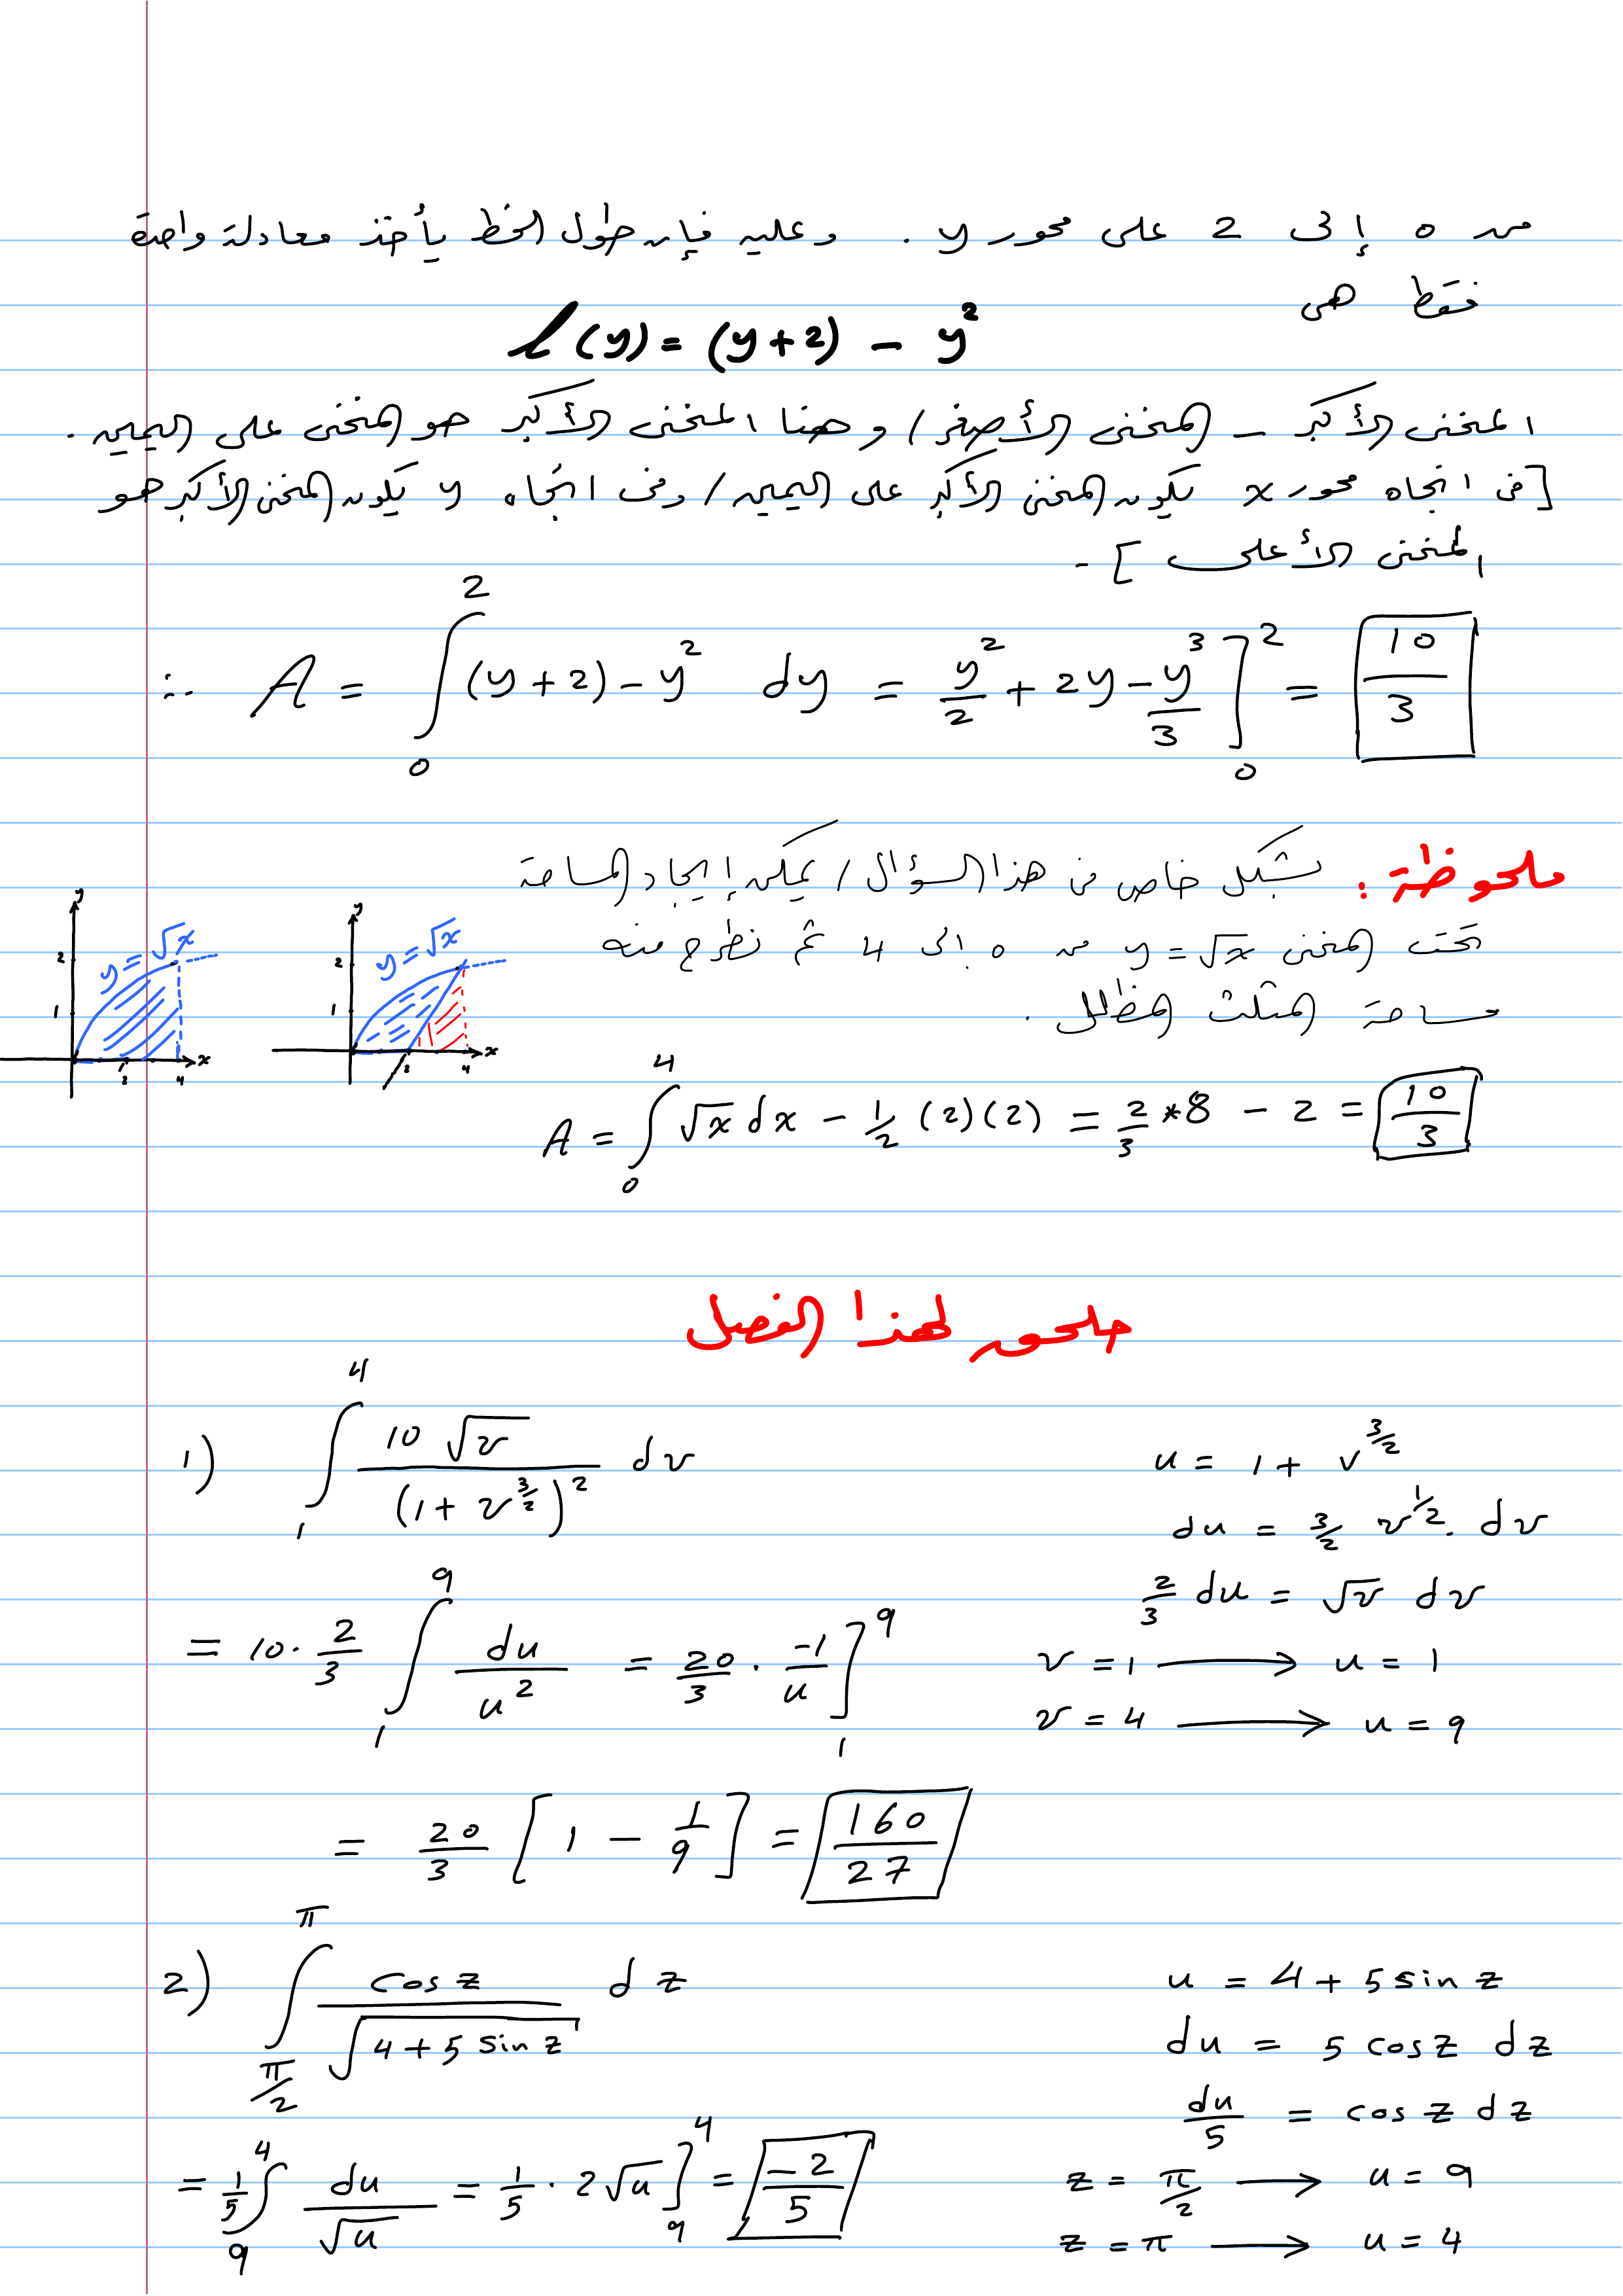 من 0 إلى 2 على محور y . وعليه فإن طول الخط يأخذ معادلة واحدة
فقط هي
l(y) = (y+2) - y²
المنحنى الأكبر - المنحنى الأصغر / وهنا المنحنى الأكبر هو المنحنى على اليمين .
[في اتجاه محور x يكون المنحنى الأكبر على اليمين / وفي اتجاه y يكون المنحنى الأكبر هو
المنحنى الأعلى ] .
∴ A = ∫₀² (y+2) - y² dy = y²/2 + 2y - y³/3 ]₀² = 10/3
ملحوظة : بشكل خاص في هذا السؤال / يمكن إيجاد المساحة
تحت المنحنى y = √x من 0 إلى 4 ثم نطرح منه
مساحة المثلث المظلل .
y
y = √x
2
1
2
4
x
y
y = √x
2
1
2
4
x
A = ∫₀⁴ √x dx - 1/2 (2)(2) = 2/3 * 8 - 2 = 10/3
ملحق لهذا الفصل
1) ∫₁⁴ 10√v / (1 + v^(3/2))² dv
u = 1 + v^(3/2)
du = 3/2 v^(1/2) . dv
2/3 du = √v dv
= 10 · 2/3 ∫₁⁹ du/u² = 20/3 · -1/u ]₁⁹
v = 1 → u = 1
v = 4 → u = 9
= 20/3 [ 1 - 1/9 ] = 160/27
2) ∫_(π/2)^π cos z / √(4 + 5 sin z) dz
u = 4 + 5 sin z
du = 5 cos z dz
du/5 = cos z dz
= 1/5 ∫₉⁴ du/√u = 1/5 · 2√u ]₉⁴ = -2/5
z = π/2 → u = 9
z = π → u = 4